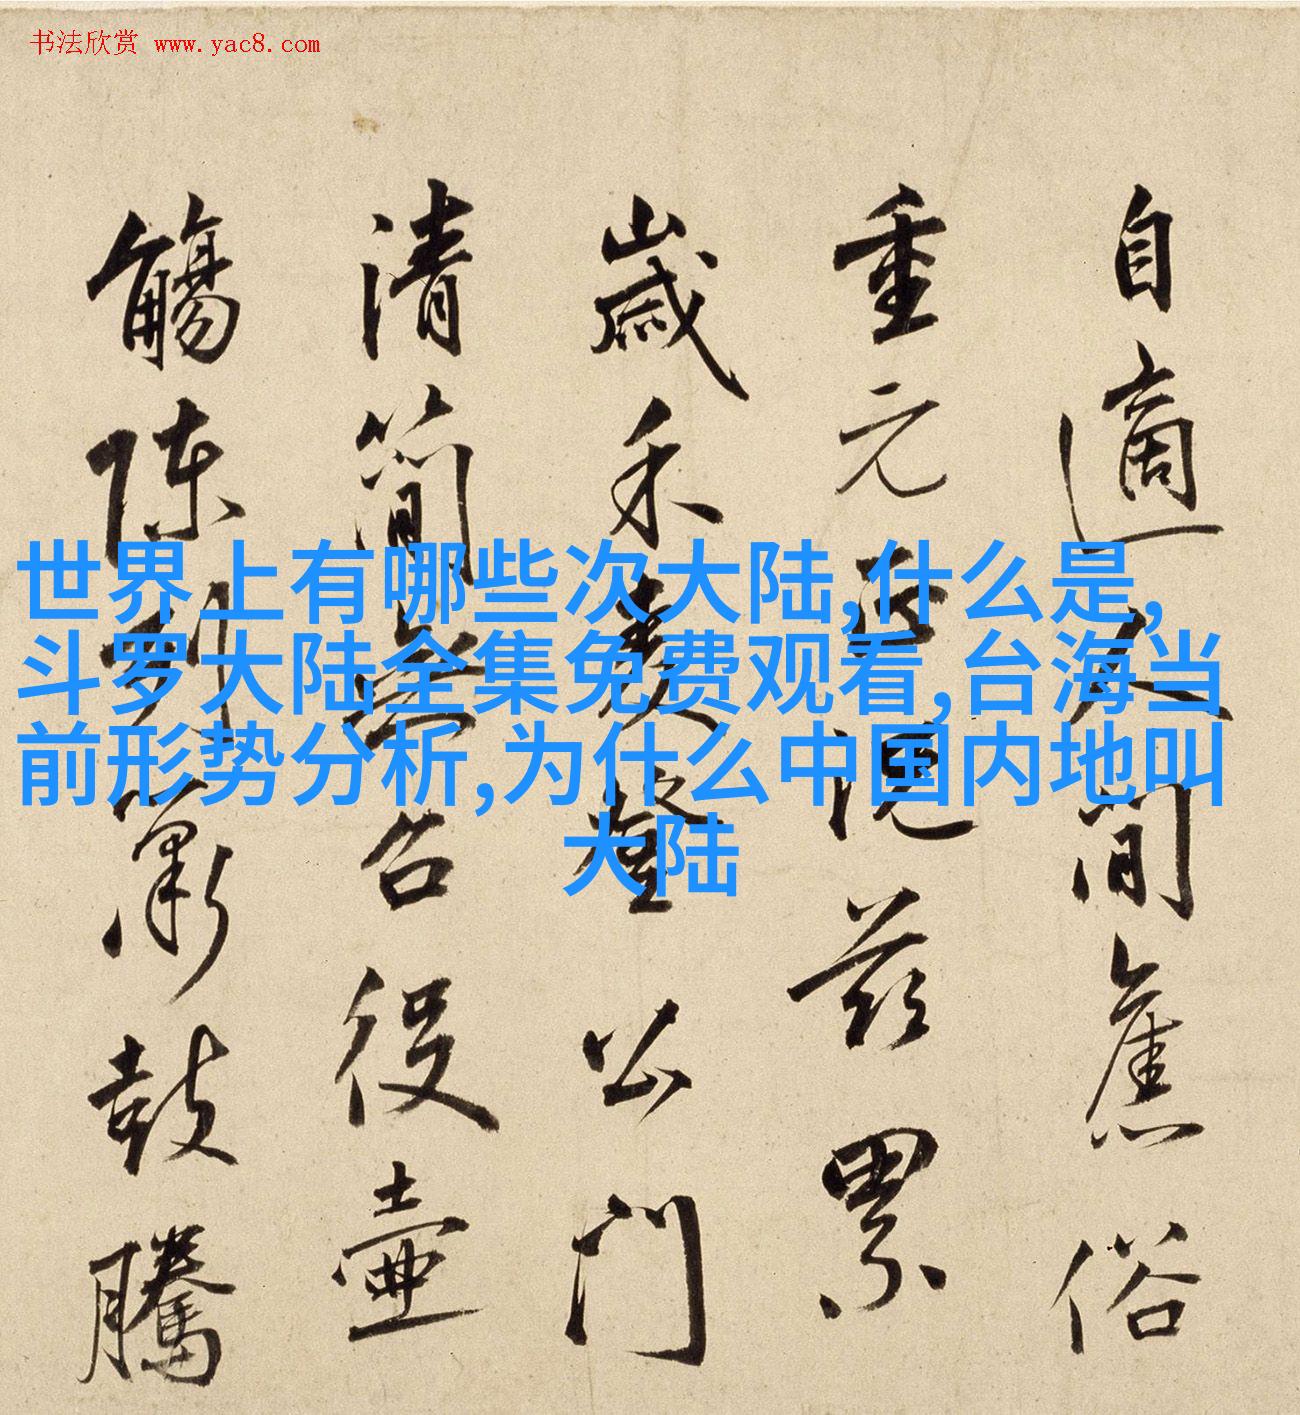 书法欣赏 www.yac8.com
自適人間舊俗
重元正況茲累
歲禾麥登公門
清簡無召役壺
觴陳列簫鼓騰
世界上有哪些次大陆,什么是,
斗罗大陆全集免费观看,台海当
前形势分析,为什么中国内地叫
大陆